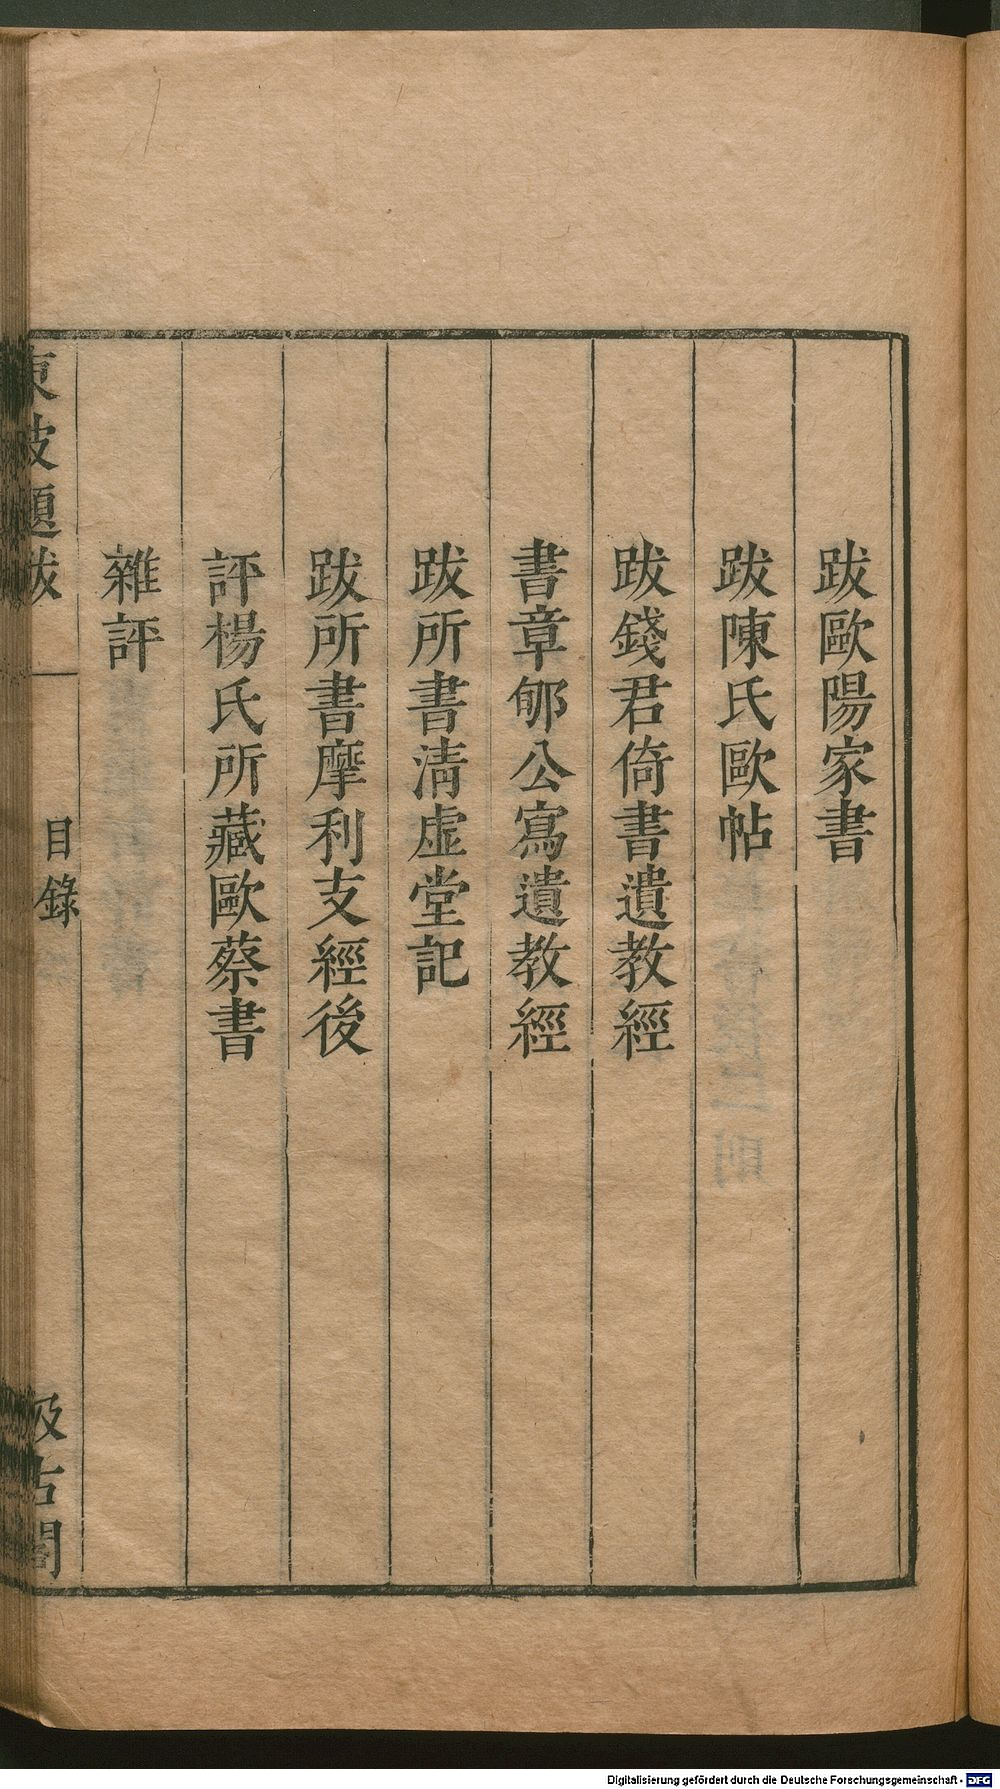 跋歐陽家書
跋陳氏歐帖
跋錢君倚書遺教經
書章郇公寫遺教經
跋所書清虛堂記
跋所書摩利支經後
評楊氏所藏歐蔡書
雜評
東坡題跋
目錄
汲古閣
Digitalisierung gefördert durch die Deutsche Forschungsgemeinschaft - DFG